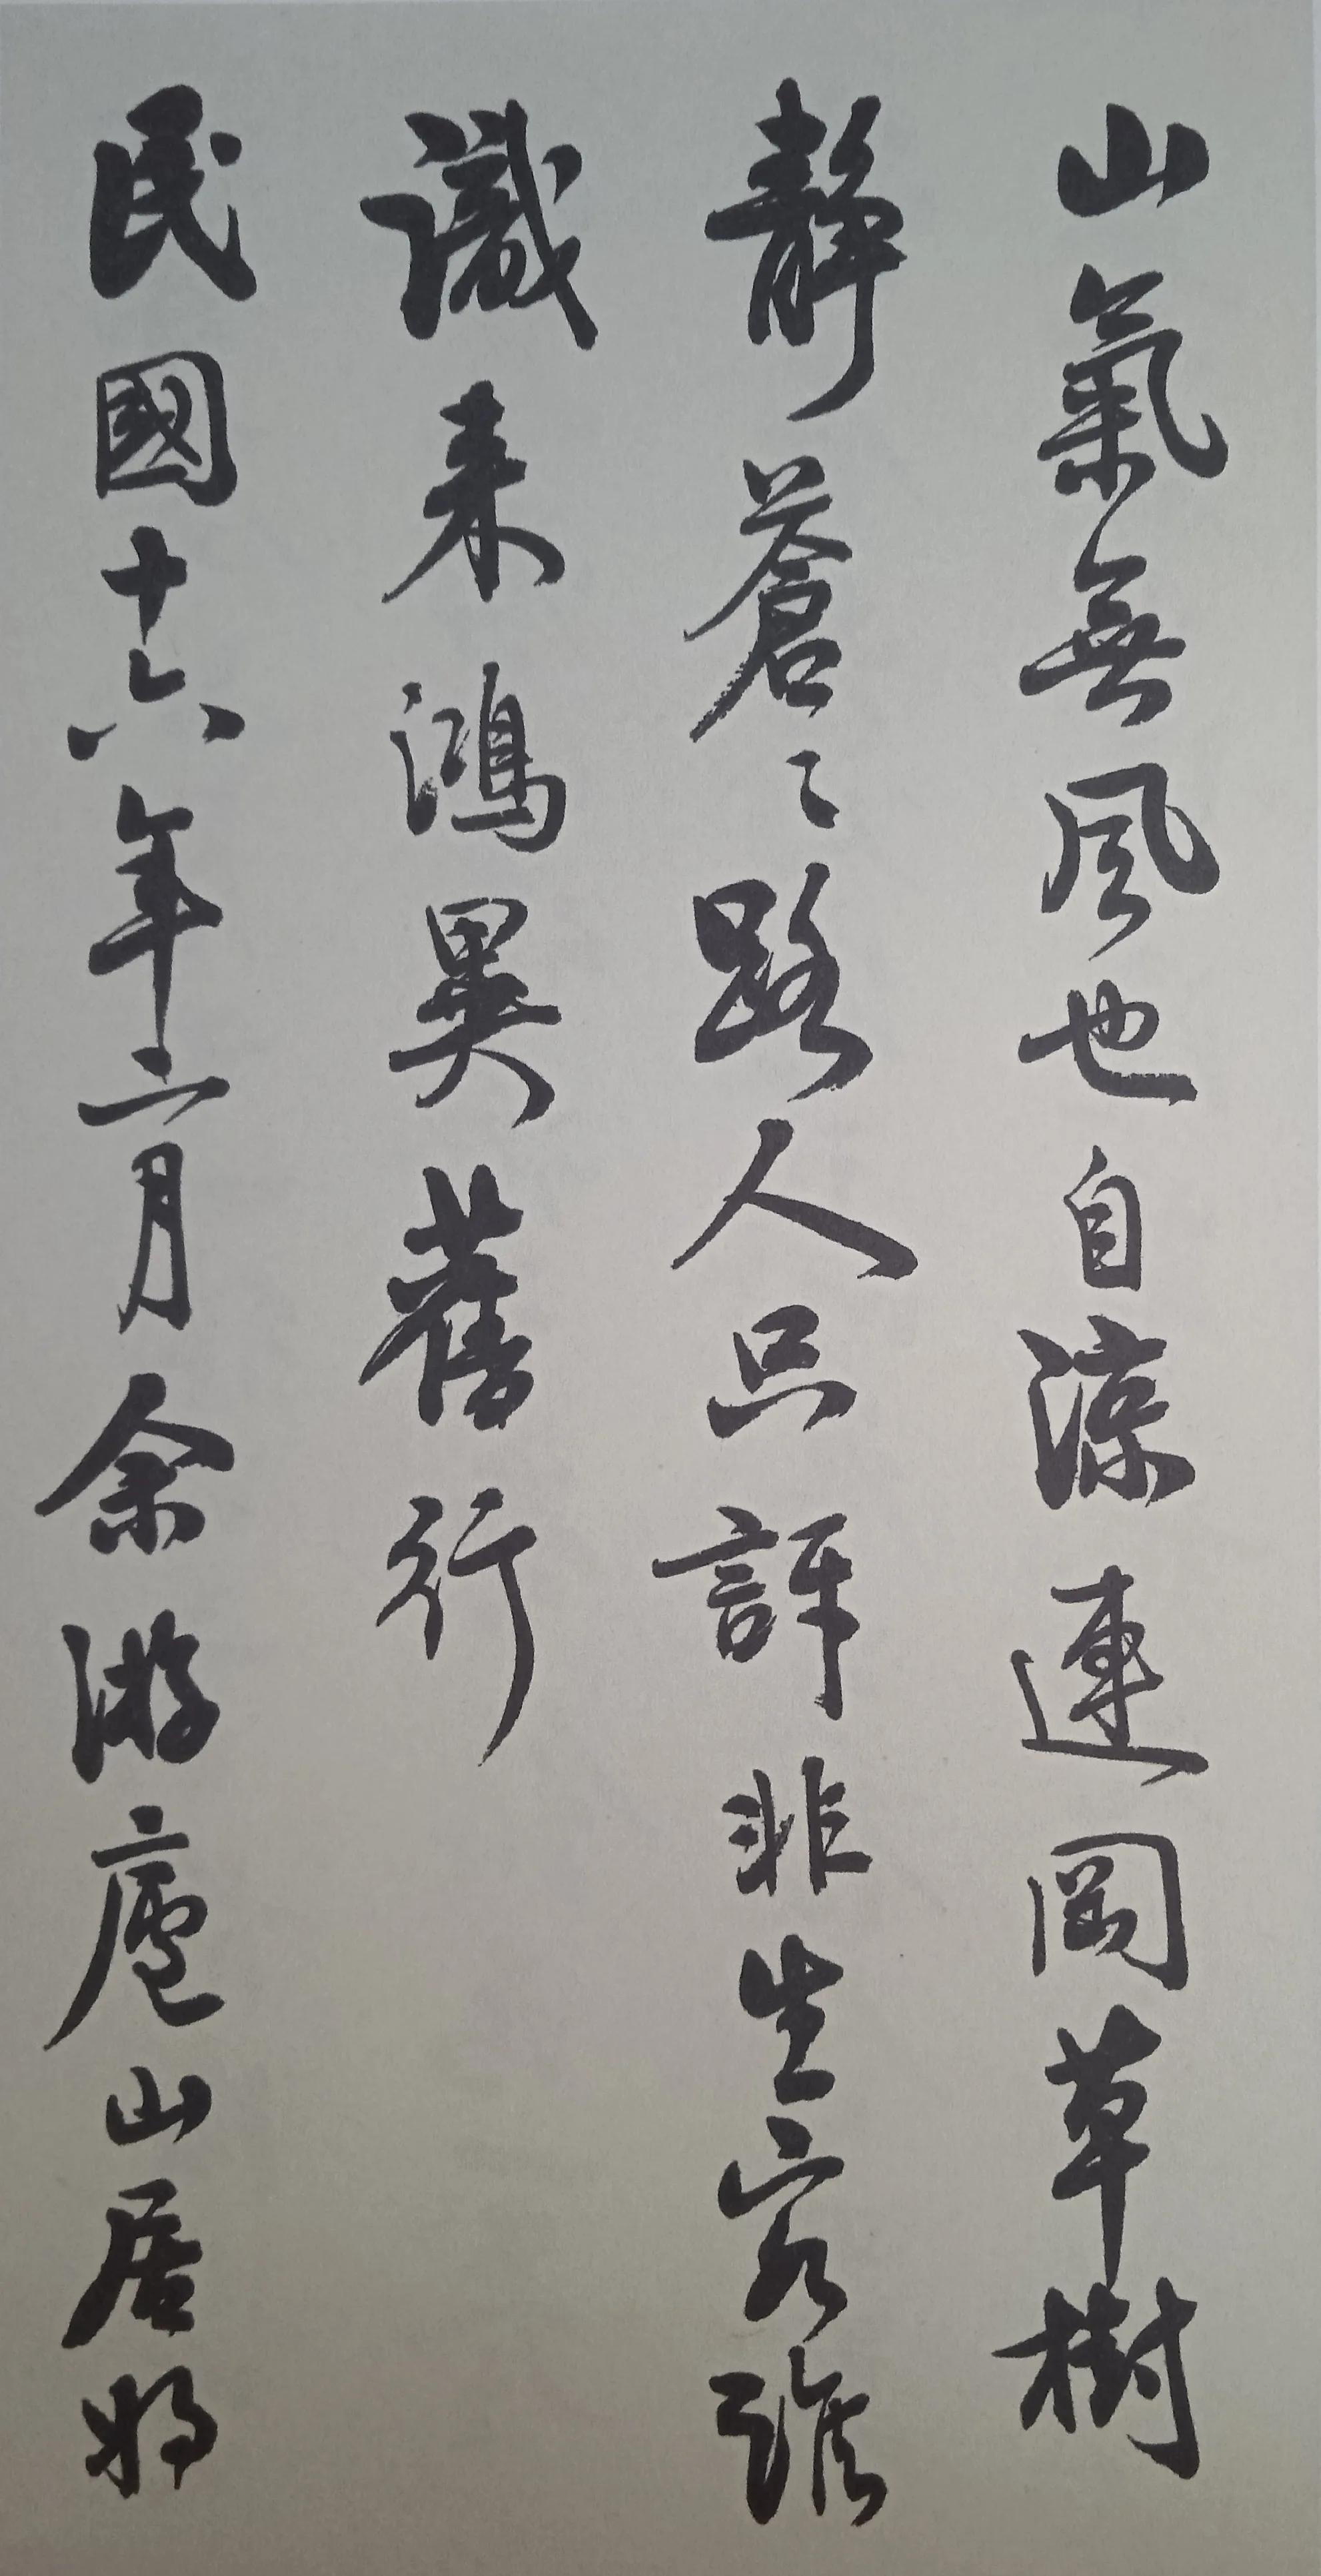 山氣無風也自涼連岡草樹
靜蒼〻路人只訝非生客誰
識来鴻異舊行
民國十六年月余游廬山居將